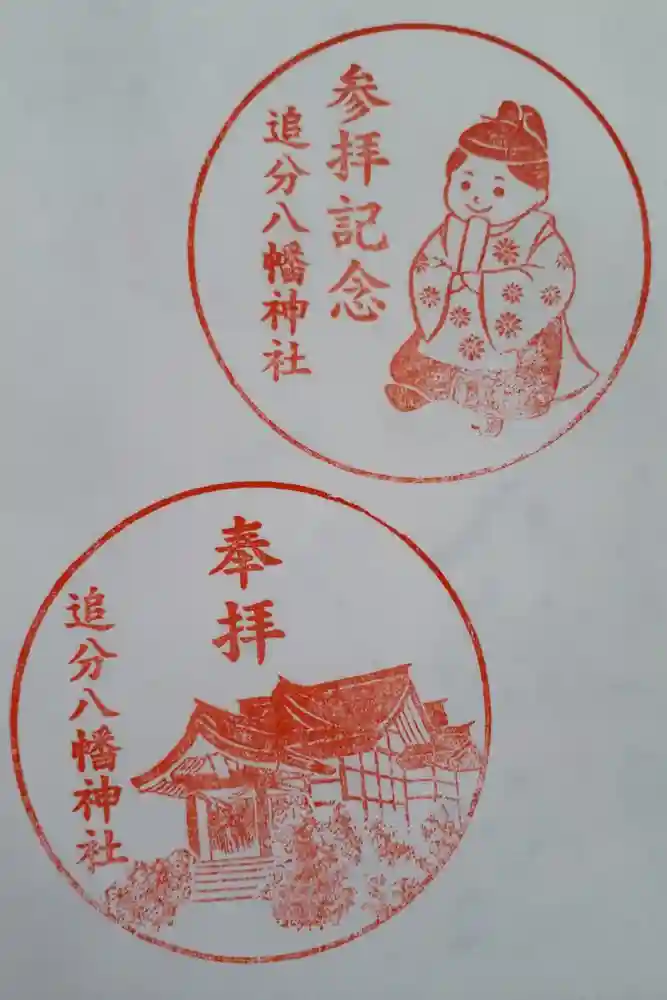 参拝記念
追分八幡神社
奉拝
追分八幡神社